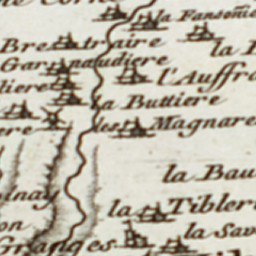 la Fansonie
Bretraire
la
Garnaudiere
l'Auffr
liere
la Buttiere
ere
les Magnare
la Bau
inay
la Tibler
on
la Sav
Granges